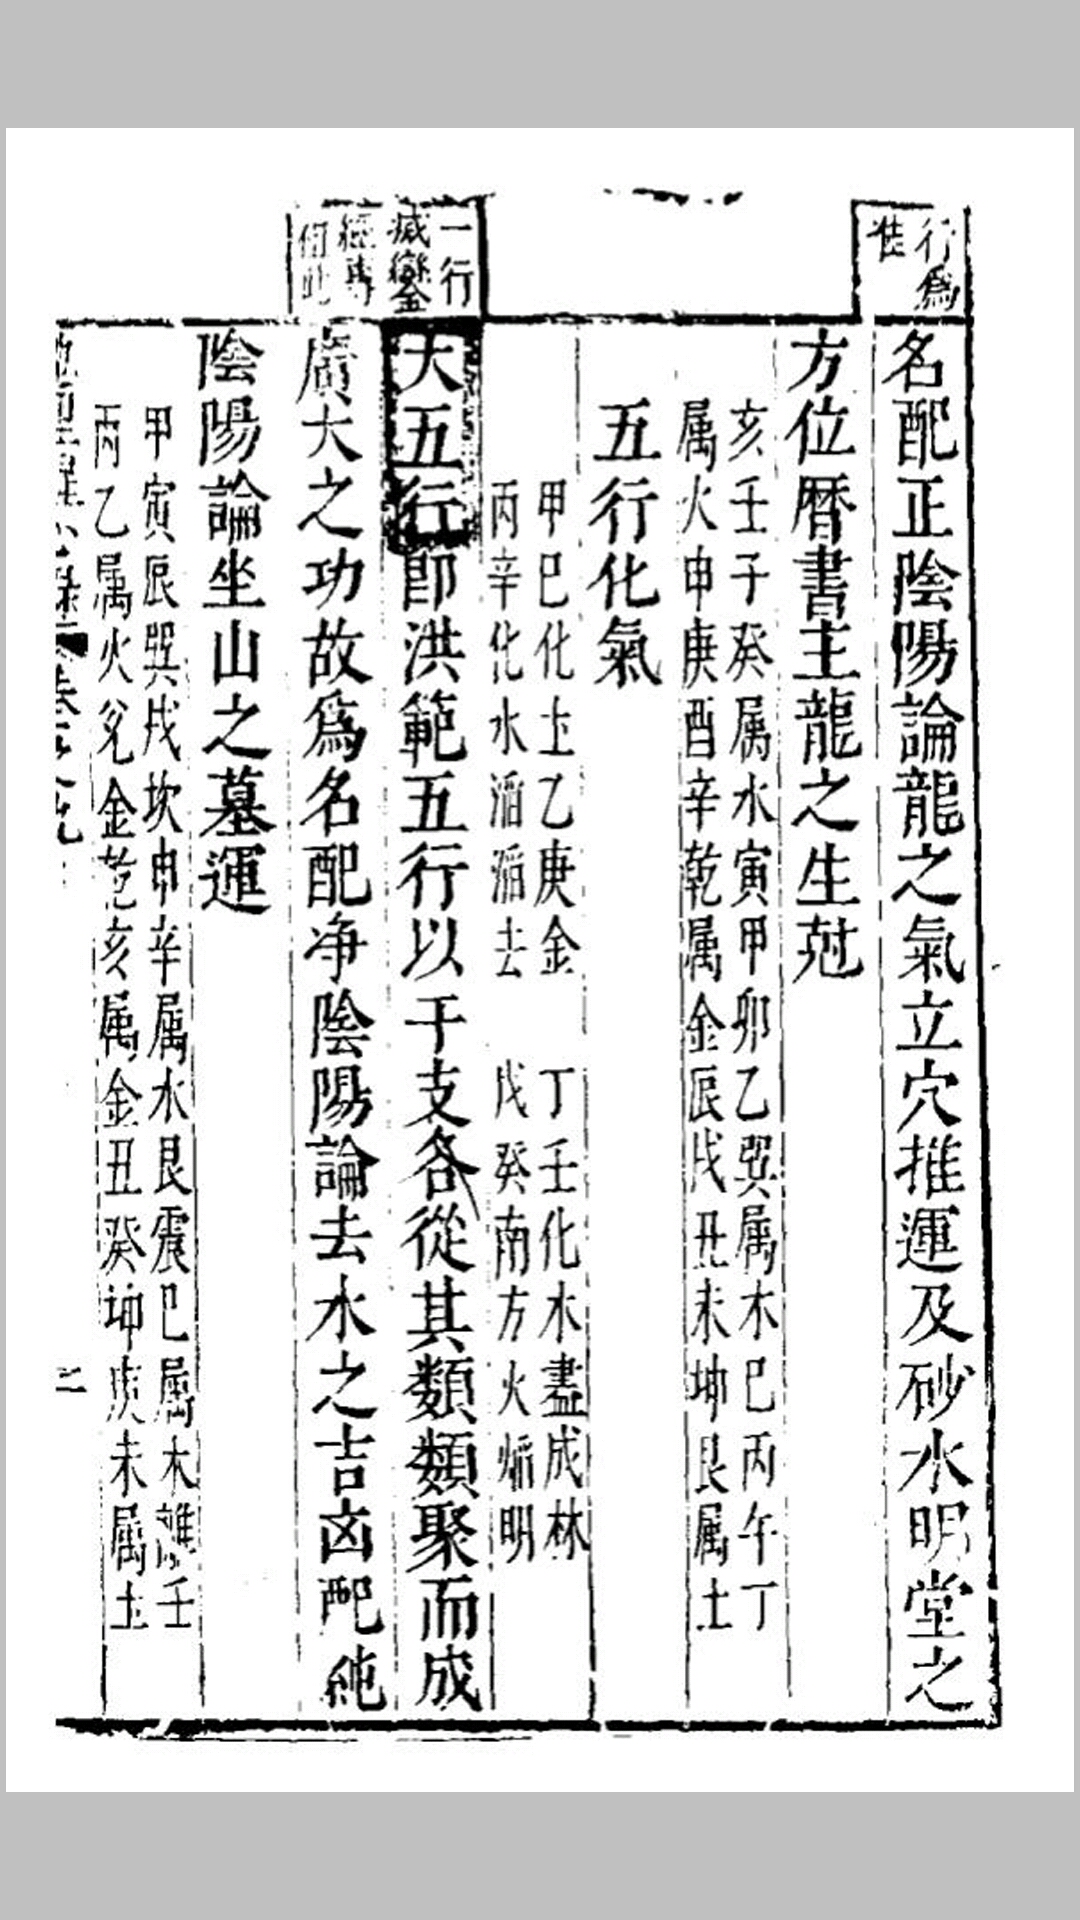 行爲
准
名配正陰陽論龍之氣立穴推運及砂水明堂之
方位暦書主龍之生尅
亥壬子癸属水寅甲卯乙巽属木巳丙午丁
属火申庚酉辛乾属金辰戌丑未坤艮属土
五行化氣
甲巳化土乙庚金　丁壬化木盡成林
丙辛化水滔滔去　戊癸南方火熖明
一行
滅蠻
經専
大五行即洪範五行以干支各從其類類聚而成
廣大之功故爲名配净陰陽論去水之吉凶配純
陰陽論坐山之墓運
甲寅辰巽戌坎申辛属水艮震巳属木離壬
丙乙属火兌金乾亥属金丑癸坤庚未属土
二